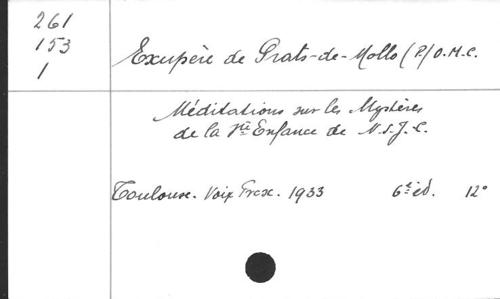 261
153
1
Exupère de Prats-de-Mollo (P) O.M.C.
Méditations sur les Mystères
de la Ste Enfance de N.S.J.C.
Toulouse. Voix Frcx. 1933 6e éd. 12°